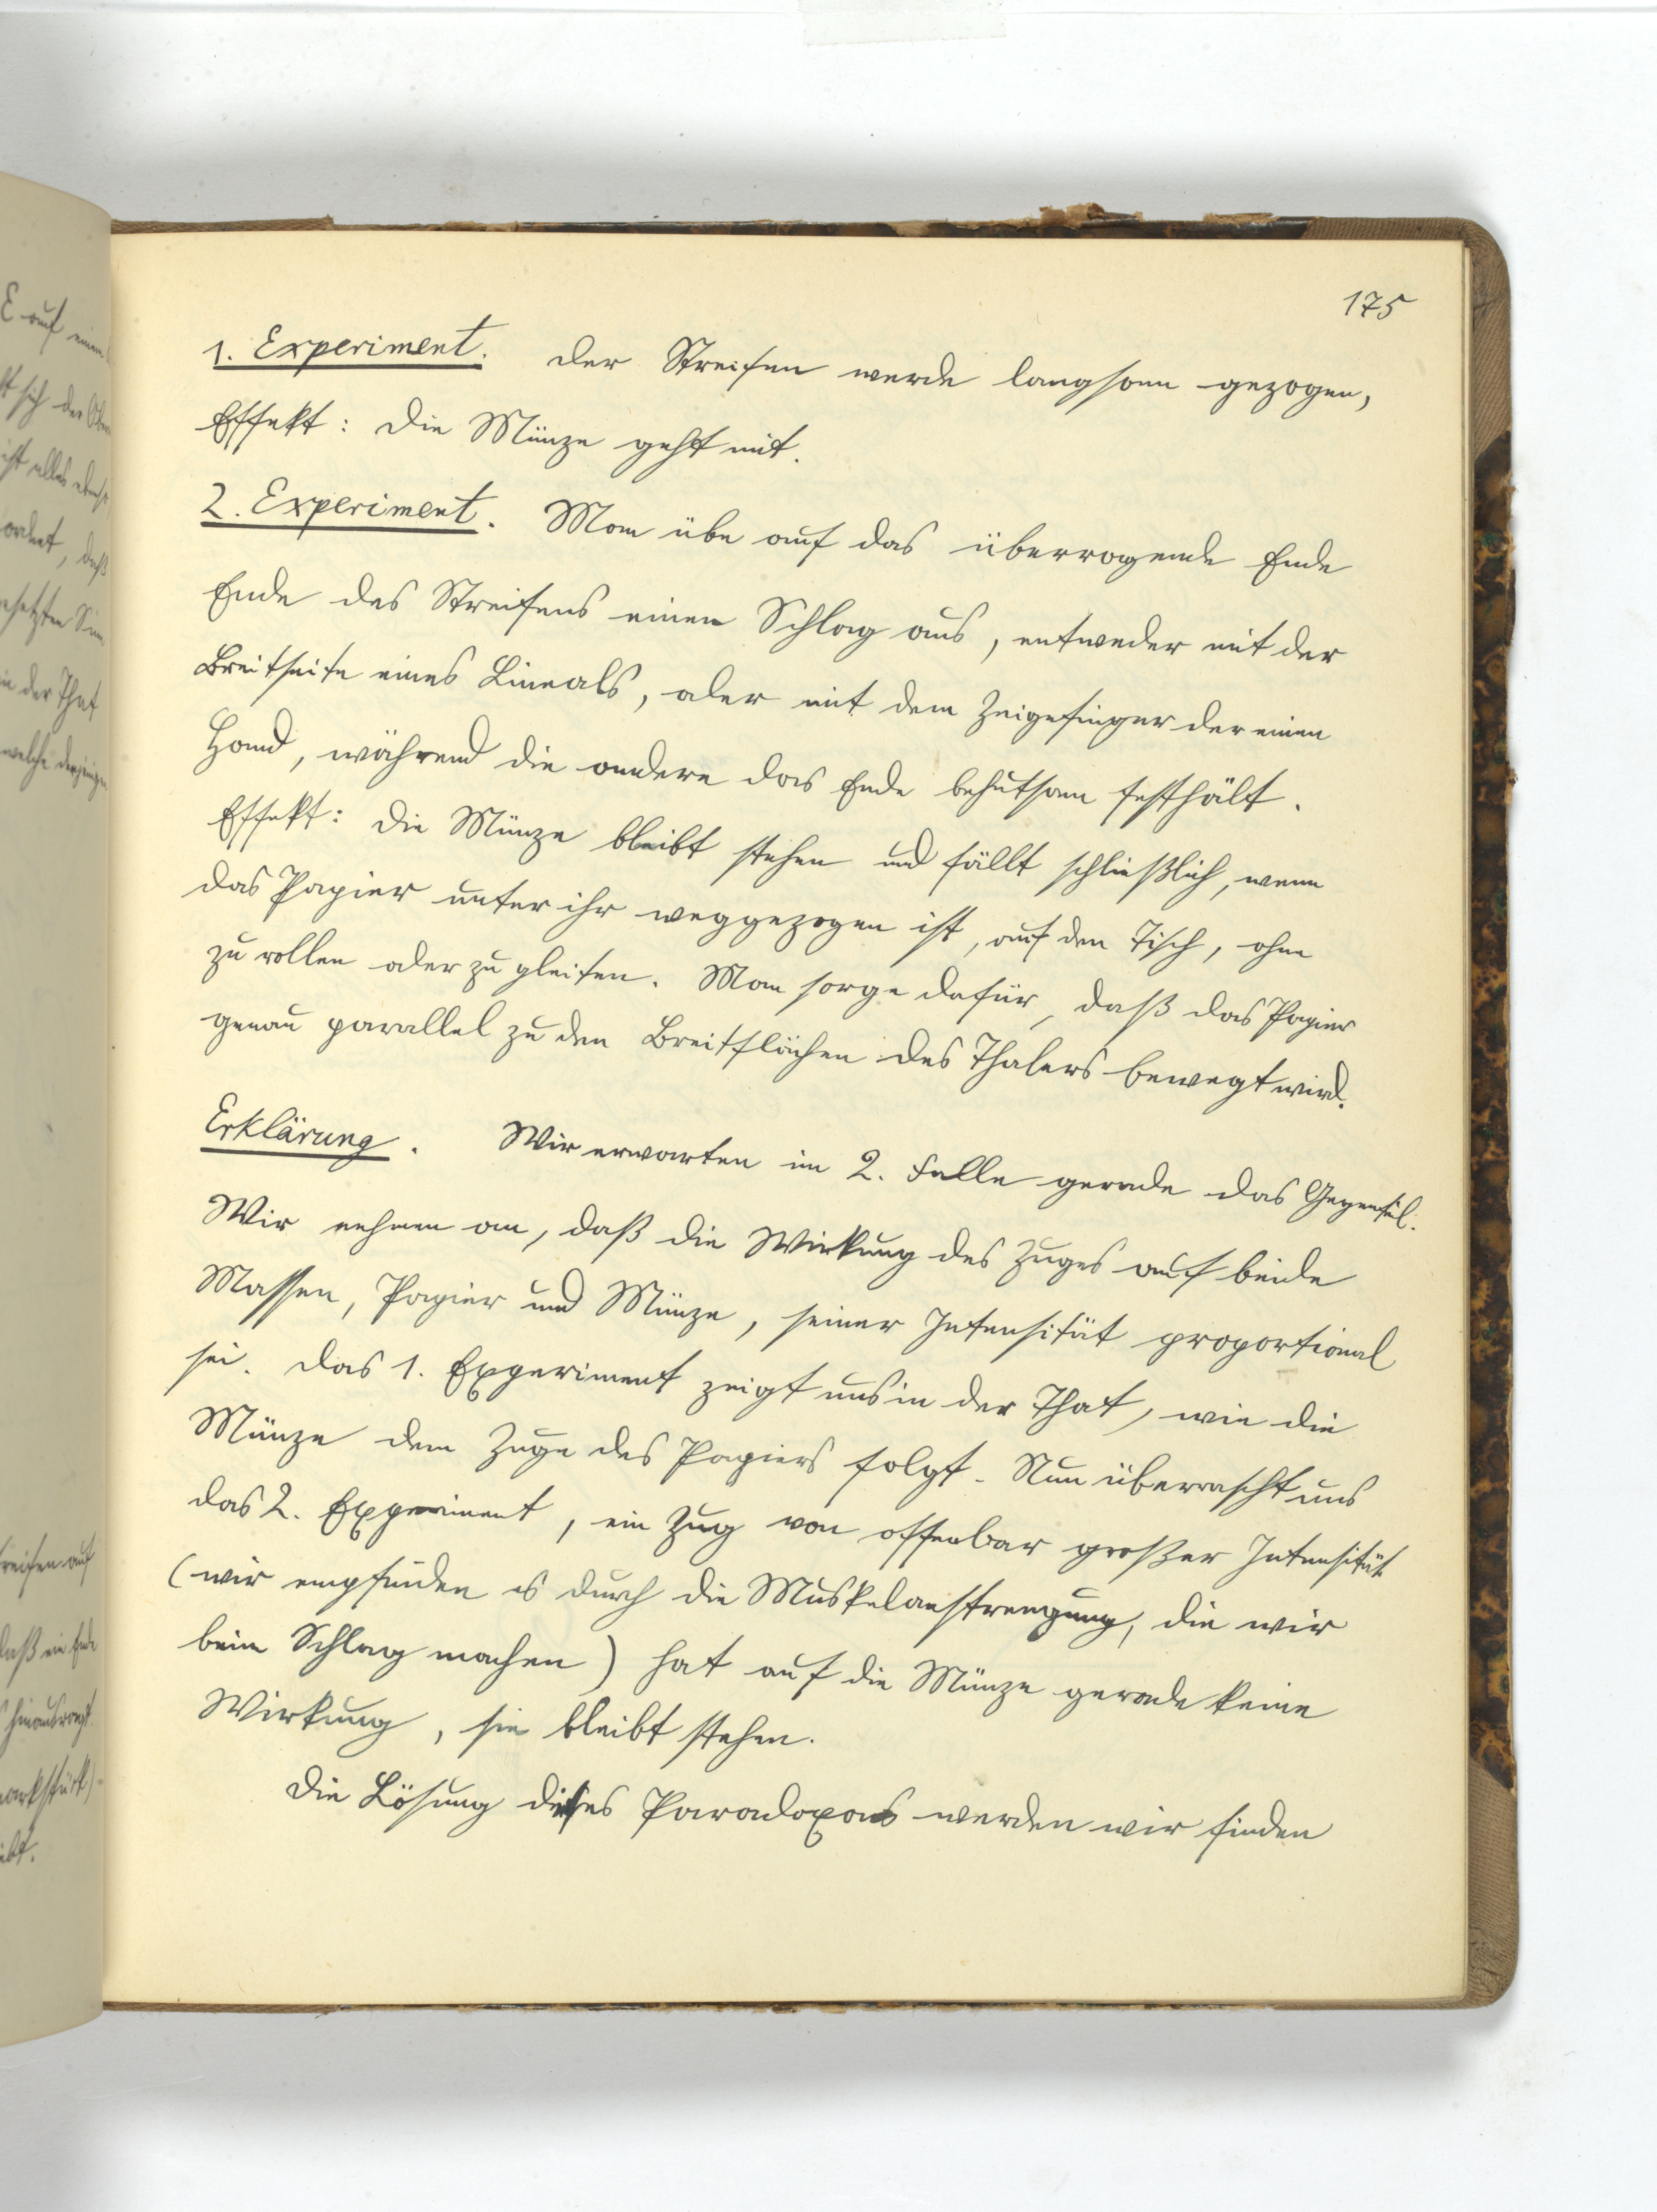 175
1. Experiment. Der Streifen werde langsam gezogen,
Effekt: Die Münze geht mit.
2. Experiment. Man übe auf das überragende Ende
Ende des Streifens einen Schlag aus, entweder mit der
Breitseite eines Lineals, oder mit dem Zeigefinger der einen
Hand, während die andere das Ende behutsam festhält.
Effekt: Die Münze bleibt stehen und fällt schließlich, wenn
das Papier unter ihr weggezogen ist, auf den Tisch, ohne
zu rollen oder zu gleiten. Man sorge dafür, daß das Papier
genau parallel zu den Breitflächen des Thalers bewegt wird.
Erklärung. Wir erwarten im 2. Falle gerade das Gegenteil.
Wir nehmen an, daß die Wirkung des Zuges auf beide
Massen, Papier und Münze, seiner Intensität proportional
sei. Das 1. Experiment zeigt uns in der That, wie die
Münze dem Zuge des Papiers folgt. Nun überrascht uns
das 2. Experiment, ein Zug von offenbar großer Intensität
(wir empfinden es durch die Muskelanstrengung, die wir
beim Schlag machen) hat auf die Münze gerade keine
Wirkung, sie bleibt stehen.
Die Lösung dieses Paradoxons werden wir finden
E auf einen
sich der
ist alles
ordnet, daß
in der That
welche derjenigen
daß ein Ende